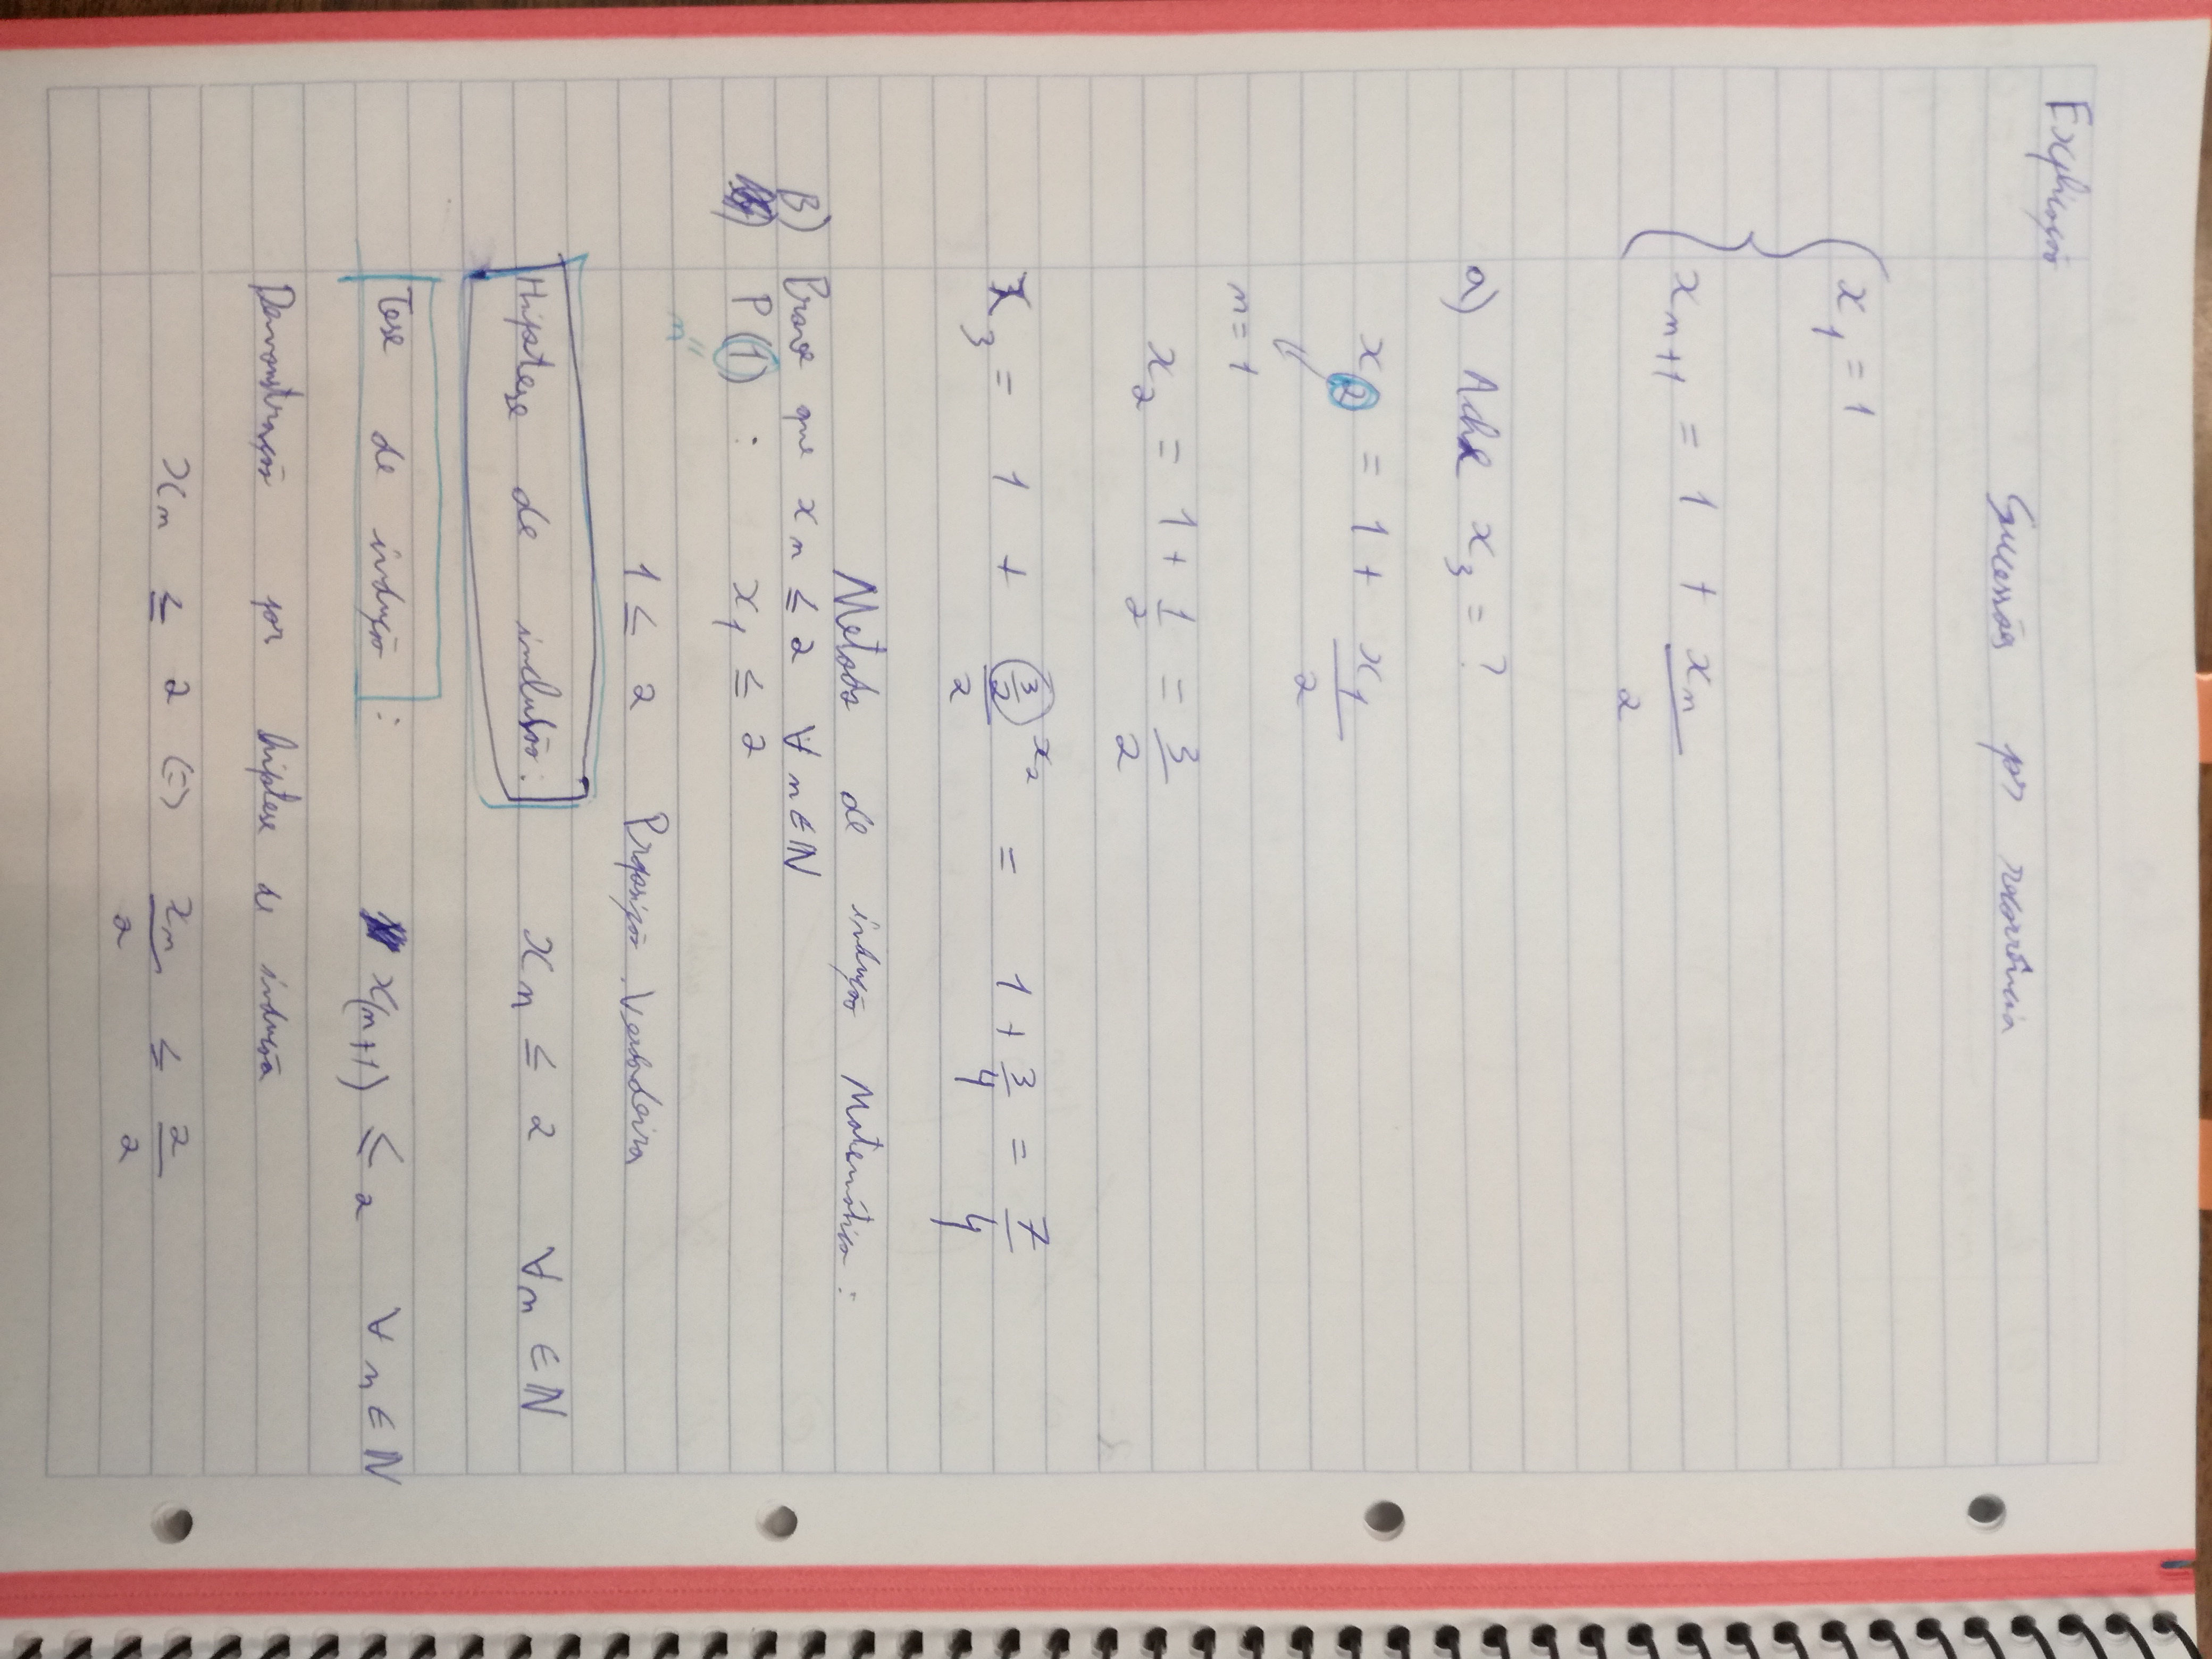 Explicação
Sucessões por recorrência
x₁ = 1
xₙ₊₁ = 1 + xₙ/2
a) Ache x₃ = ?
x₂ = 1 + x₁/2
n = 1
x₂ = 1 + 1/2 = 3/2
x₃ = 1 + (3/2)/2 x₂ = 1 + 3/4 = 7/4
Metodo de indução Matemática:
B) Prove que xₙ ≤ 2 ∀ n ∈ ℕ
P(1) : x₁ ≤ 2
n"
1 ≤ 2 Proposição Verdadeira
Hipotese de indução: xₙ ≤ 2 ∀n ∈ ℕ
Tese de indução: x(n+1) ≤ 2 ∀ n ∈ ℕ
Demonstração por hipotese de indução
xₙ ≤ 2 (=) xₙ/2 ≤ 2/2